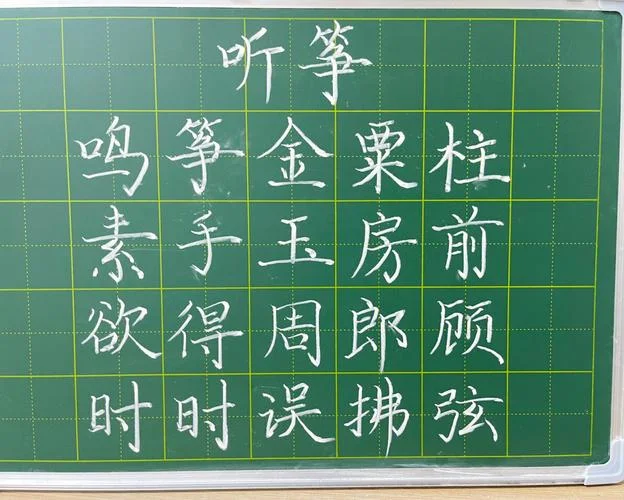 听筝
鸣筝金粟柱
素手玉房前
欲得周郎顾
时时误拂弦